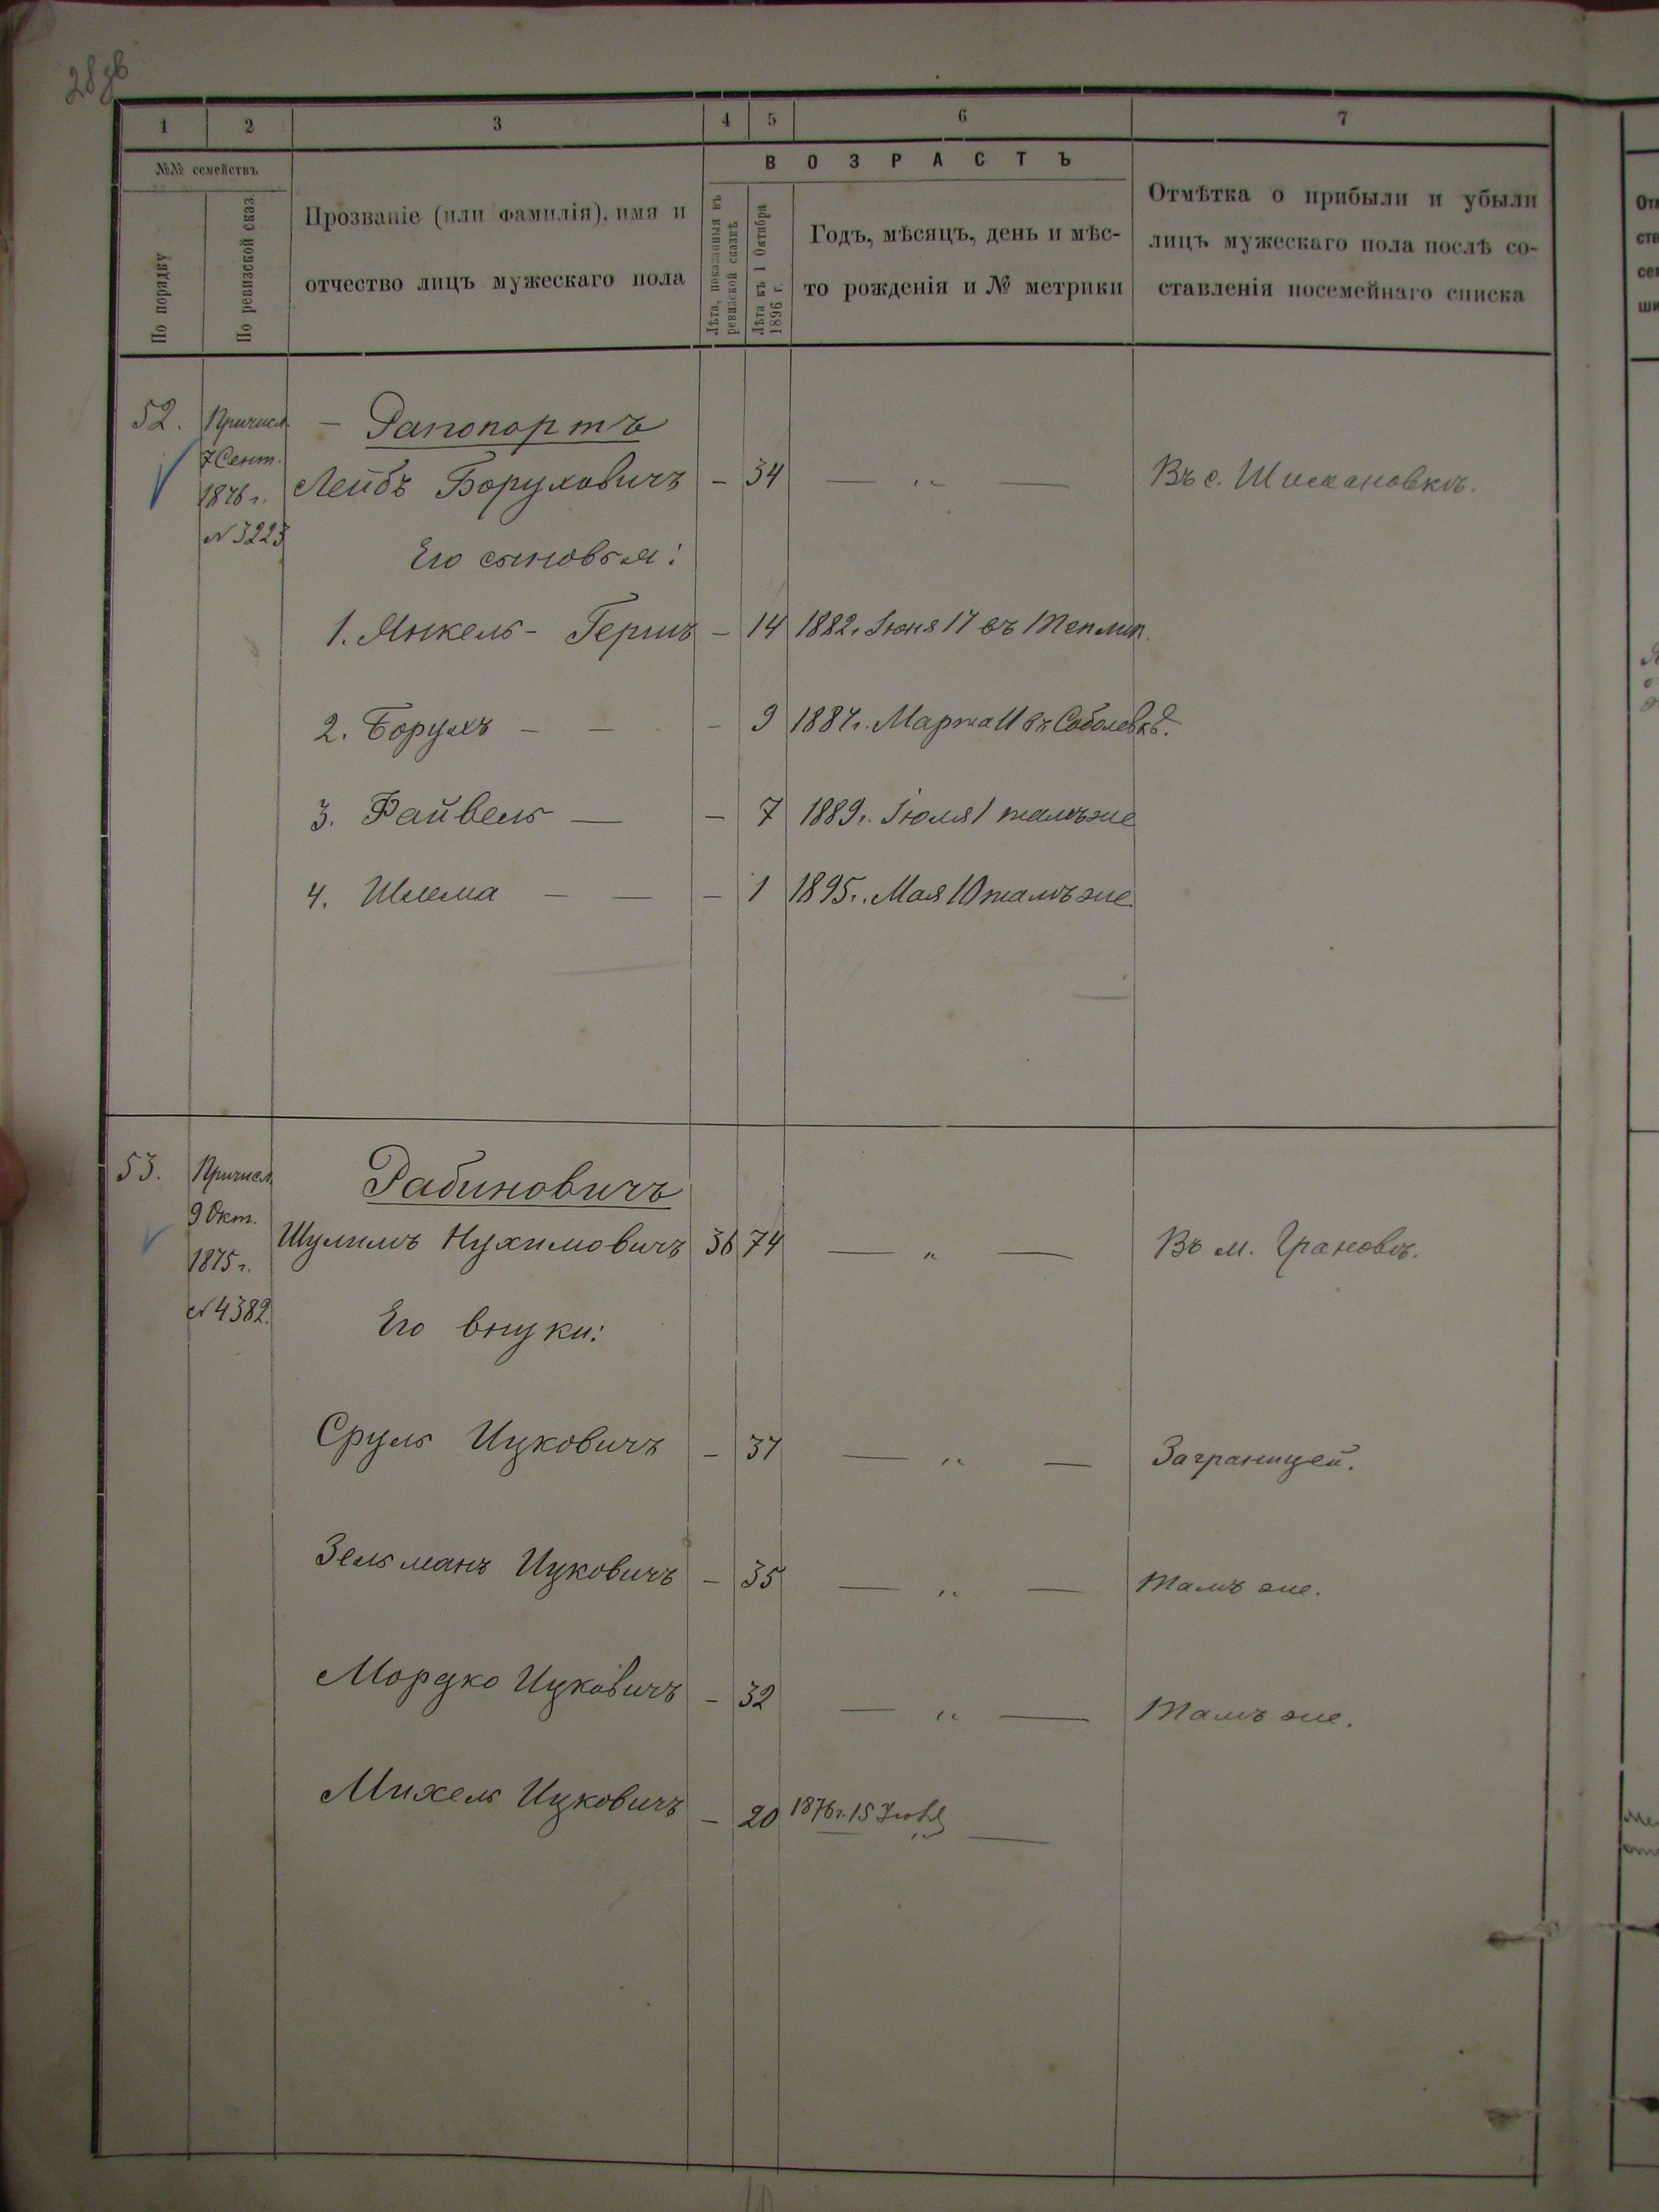 28 об
1 2 3 4 5 6 7
№№ семействъ
По порядку
По ревизской сказ
Прозваніе (или фамилія), имя и
отчество лицъ мужескаго пола
ВОЗРАСТЪ
Лѣта, показанныя въ
ревизской сказкѣ
Лѣта къ 1 Октября
1896 г.
Годъ, мѣсяцъ, день и мѣс-
то рожденія и № метрики
Отмѣтка о прибыли и убыли
лицъ мужескаго пола послѣ со-
ставленія посемейнаго списка
52. Причисл. – Рапопортъ
7 Сент.
1876 г. Лейбъ Боруховичъ – 34 — „ — Въ с. Шимановкѣ.
№ 3223
Его сыновья:
1. Янкель - Гершъ – 14 1882 г. Іюня 17 въ Теплик.
2. Борухъ – – – 9 1887 г. Марта 11 въ Соболевкѣ.
3. Файвель — – 7 1889 г. Іюля 1 тамъ же
4. Шлема – — – 1 1895 г. Мая 10 тамъ же
53. Причисл. Рабиновичъ
9 Окт.
1875 г. Шулимъ Нухимовичъ 36 74 — „ — Въ м. Грановѣ.
№ 4382.
Его внуки:
Сруль Ицковичъ – 37 — „ — Заграницей.
Зельманъ Ицковичъ – 35 — „ — Тамъ же.
Мордко Ицковичъ – 32 — „ — Тамъ же.
Михель Ицковичъ – 20 1876 г. 15